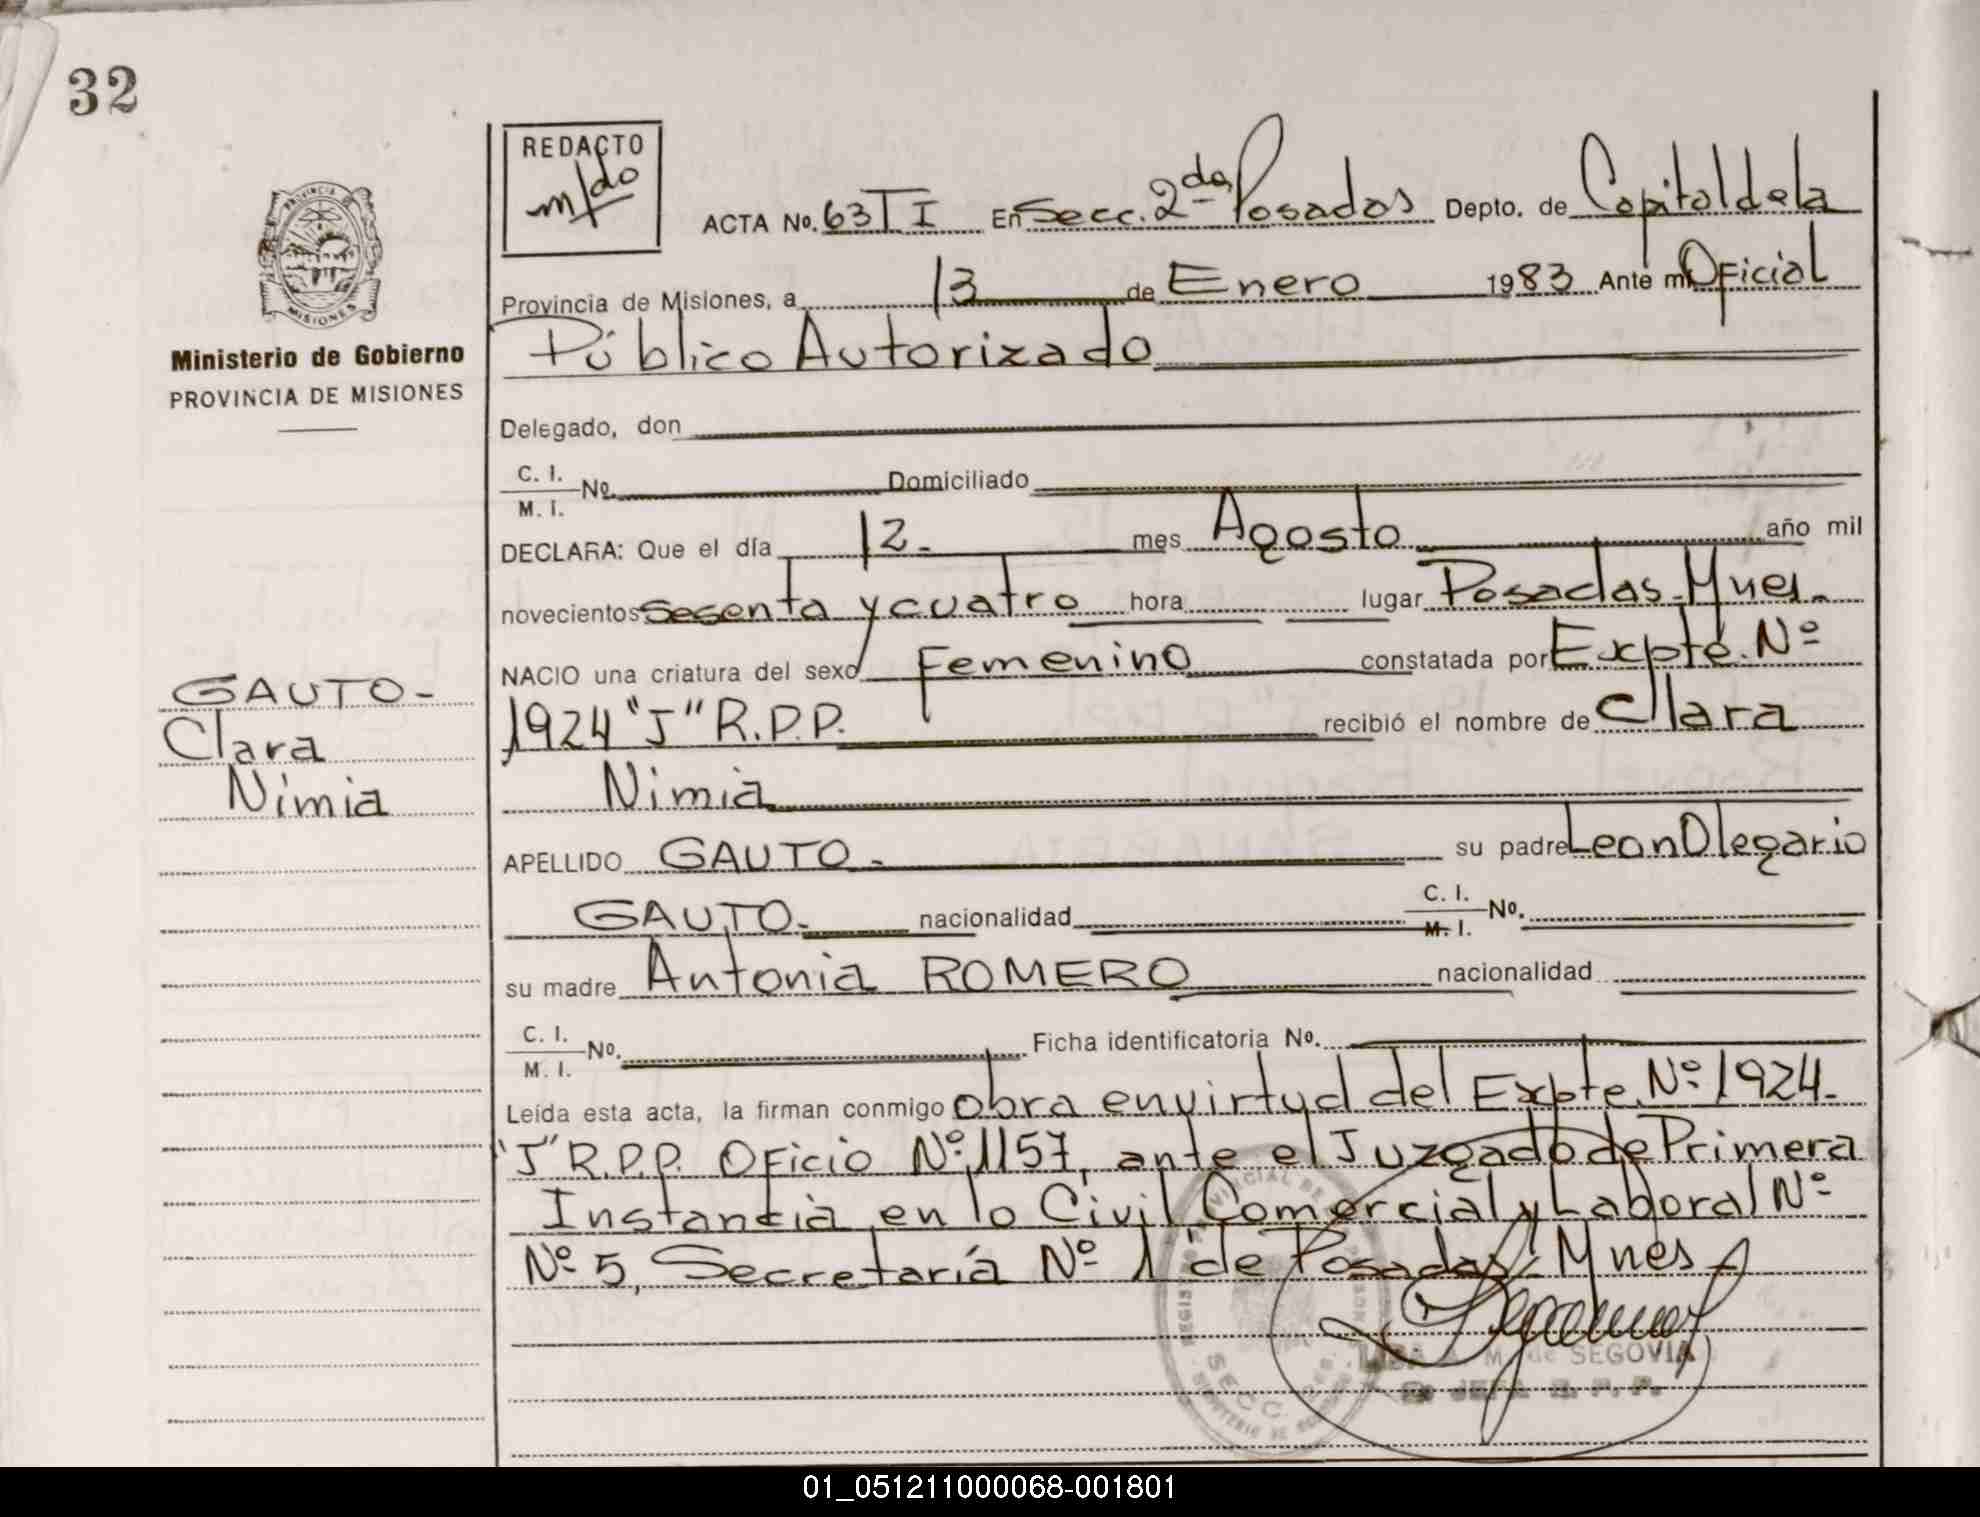 32
PROVINCIA
MISIONES
Ministerio de Gobierno
PROVINCIA DE MISIONES
GAUTO-
Clara
Nimia
REDACTO
m/do
ACTA No. 63 T I En Secc. 2da Posadas Depto. de Capital de la
Provincia de Misiones, a 13 de Enero 1983 Ante mi Oficial
Público Autorizado
Delegado, don
C. I.
M. I. No. Domiciliado
DECLARA: Que el día 12- mes Agosto año mil
novecientos sesenta y cuatro hora lugar Posadas-Mnes-
NACIO una criatura del sexo Femenino constatada por Expte. Nº
1924 "J" R.P.P. recibió el nombre de Clara
Nimia
APELLIDO GAUTO- su padre Leon Olegario
GAUTO- nacionalidad C. I.
M. I. No.
su madre Antonia ROMERO nacionalidad
C. I.
M. I. No. Ficha identificatoria No.
Leída esta acta, la firman conmigo obra en virtud del Expte. Nº 1924-
"J" R.P.P. Oficio Nº 1157, ante el Juzgado de Primera
Instancia en lo Civil Comercial y Laboral Nº
Nº 5, Secretaría Nº 1 de Posadas, Mnes
M. de SEGOVIA
JEFA R. P. P.
01_051211000068-001801